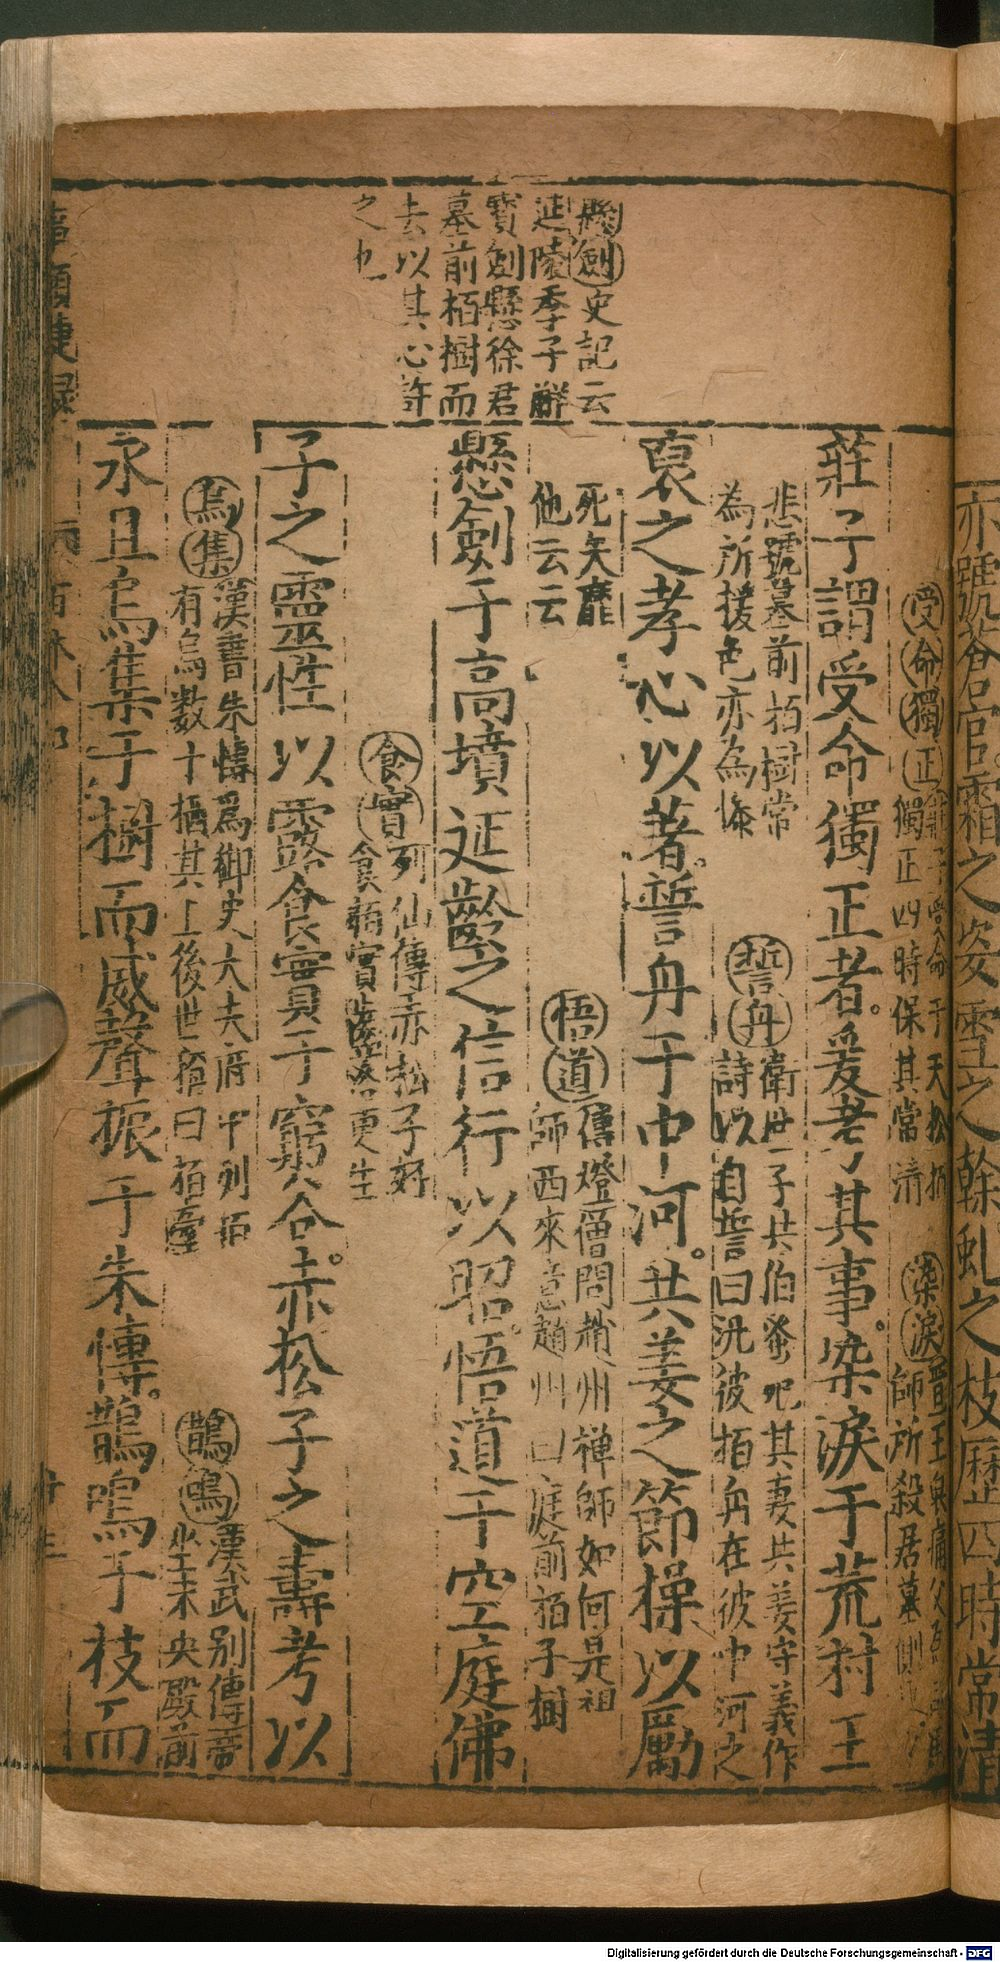 亦號蒼官霜之姿雪之幹虬之枝歷四時常清
懸劍史記云
延陵季子解
寶劍懸徐君
墓前栢樹而
去以其心許
之也
受命獨正莊子受命于天松栢
獨正四時保其常清
染淚晋王裒痛父
師所殺居墓側
莊子謂受命獨正者爰考其事染淚于荒村王
悲號墓前栢樹常
為所援色亦為慘
誓舟衛世子共伯蚤死其妻共姜守義作
詩以自誓曰汎彼栢舟在彼中河之
裒之孝心以著誓舟于中河共姜之節操以勵
死矢靡
他云云
悟道傳燈僧問趙州禅師如何是祖
師西來意趙州曰庭前栢子樹
懸劍于高墳延齡之信行以昭悟道于空庭佛
食實列仙傳赤松子好
食栢實齒落更生
子之靈性以露食實于窮谷赤松子之壽考以
烏集漢書朱愽為御史大夫府中列栢
有烏数十栖其上後世稱曰栢臺
鵲鳴漢武别傳帝
坐未央殿前
永且烏集于樹而威聲振于朱愽鵲鳴于枝而
事類捷録
Digitalisierung gefördert durch die Deutsche Forschungsgemeinschaft - DFG